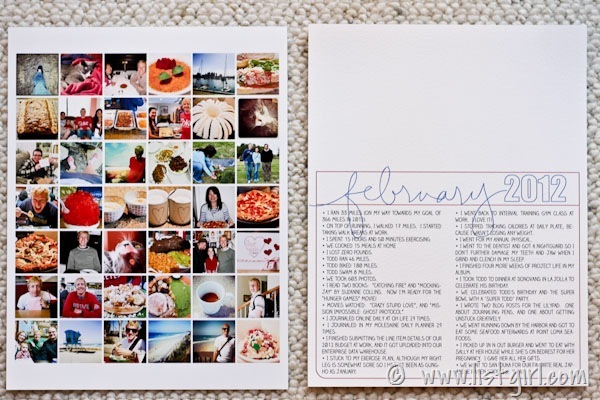 february 2012
• I RAN 33 MILES (ON MY WAY TOWARDS MY GOAL OF
366 MILES IN 2012).
• ON TOP OF RUNNING, I WALKED 17 MILES. I STARTED
TAKING WALK BREAKS AT WORK.
• I SPENT 15 HOURS AND 58 MINUTES EXERCISING.
• WE COOKED 15 MEALS AT HOME.
• I LOST ZERO POUNDS.
• TODD RAN 46 MILES.
• TODD BIKED 188 MILES.
• TODD SWAM 8 MILES.
• WE TOOK 685 PHOTOS.
• I READ TWO BOOKS: "CATCHING FIRE" AND "MOCKING-
JAY" BY SUZANNE COLLINS. NOW I'M READY FOR THE
"HUNGER GAMES" MOVIE!
• MOVIES WATCHED: "CRAZY STUPID LOVE", AND "MIS-
SION IMPOSSIBLE: GHOST PROTOCOL".
• I JOURNALED ONLINE DAILY AT OH LIFE 29 TIMES.
• I JOURNALED IN MY MOLESKINE DAILY PLANNER 29
TIMES.
• I FINISHED SUBMITTING THE LINE ITEM DETAILS OF OUR
2012 BUDGET AT WORK, AND IT GOT UPLOADED INTO OUR
ENTERPRISE DATA WAREHOUSE.
• I STUCK TO MY EXERCISE PLAN, ALTHOUGH MY RIGHT
LEG IS SOMEWHAT SORE SO I MUST BEEN AS GUNG-
HO AS JANUARY.
• I WENT BACK TO INTERVAL TRAINING GYM CLASS AT
WORK. I LOVE IT!
• I STOPPED TRACKING CALORIES AT DAILY PLATE, BE-
CAUSE I WASN'T LOSING ANY WEIGHT.
• I WENT FOR MY ANNUAL PHYSICAL.
• I WENT TO THE DENTIST AND GOT A NIGHTGUARD SO I
DON'T FURTHER DAMAGE MY TEETH AND JAW WHEN I
GRIND AND CLENCH IN MY SLEEP.
• I FINISHED FOUR MORE WEEKS OF PROJECT LIFE IN MY
ALBUM.
• I TOOK TODD TO DINNER AT DONOVANS IN LA JOLLA TO
CELEBRATE HIS BIRTHDAY.
• WE CELEBRATED TODD'S BIRTHDAY AND THE SUPER
BOWL WITH A "SUPER TODD" PARTY.
• I WROTE TWO BLOG POSTS FOR THE ONE
ABOUT JOURNALING PENS, AND ONE ABOUT GETTING
UNSTUCK CREATIVELY.
• WE WENT RUNNING DOWN BY THE HARBOR AND GOT TO
EAT SOME SEAFOOD AFTERWARDS AT POINT LOMA SEA-
FOODS.
• I PICKED UP IN N OUT BURGER AND WENT TO EAT WITH
SALLY AT HER HOUSE WHILE SHE'S ON BEDREST FOR HER
PREGNANCY. I GAVE HER ALL HER GIFTS.
• WE WENT TO SAN FOR OUR FAVORITE REAL JAP-
© www.listgirl.com